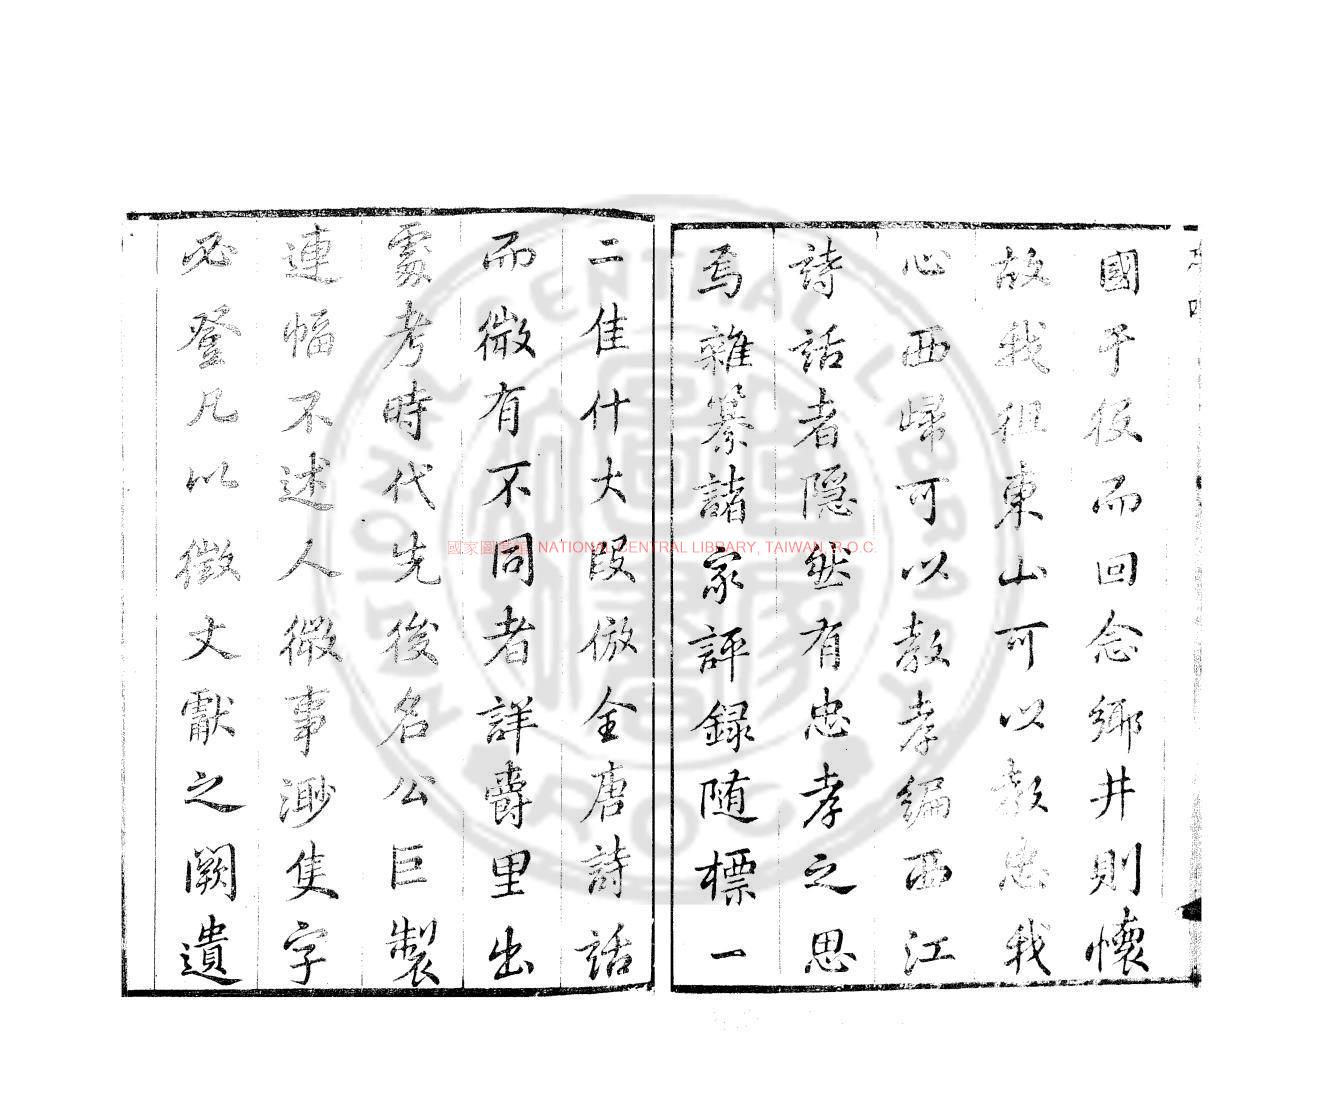 國于役而回念鄉井則懷
故我徂東山可以教忠我
心西歸可以教孝編西江
詩話者隱然有忠孝之思
焉雜纂諸家評録随標一
二佳什大段倣全唐詩話
而微有不同者詳爵里出
處考時代先後名公巨製
連幅不述人微事渺隻字
必登凡以徵文獻之闕遺
國家圖書館 NATIONAL CENTRAL LIBRARY, TAIWAN, R.O.C.
NATIONAL CENTRAL LIBRARY
R.O.C.